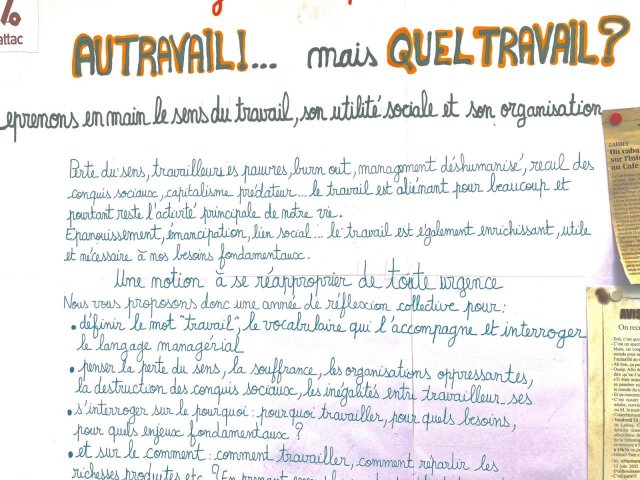 %
attac
AU TRAVAIL!... mais QUEL TRAVAIL?
eprenons en main le sens du travail, son utilité sociale et son organisation
Perte du sens, travailleurs es pauvres, burn out, management déshumanisé, recul des
conquis sociaux, capitalisme prédateur... le travail est aliénant pour beaucoup et
pourtant reste l'activité principale de notre vie.
Epanouissement, émancipation, lien social... le travail est également enrichissant, utile
et nécessaire à nos besoins fondamentaux.
Une notion à se réapproprier de toute urgence
Nous vous proposons donc une année de réflexion collective pour:
• définir le mot "travail", le vocabulaire qui l'accompagne et interroger
le langage managérial
• penser la perte du sens, la souffrance, les organisations oppressantes,
la destruction des conquis sociaux, les inégalités entre travailleur ses
• s'interroger sur le pourquoi: pourquoi travailler, pour quels besoins,
pour quels enjeux fondamentaux?
• et sur le comment: comment travailler, comment répartir les
richesses produites etc.? En prenant
LABREY
Un caba
sur l'inte
au Café
AVIS
On rec